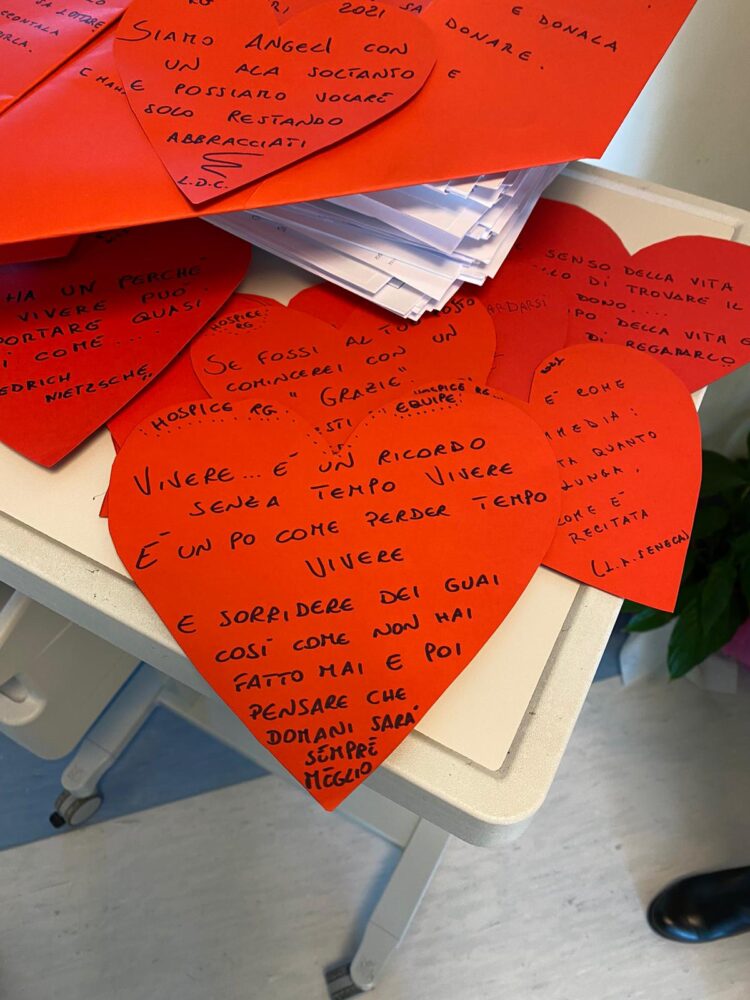 SA LOTTARE
RACCONTALA
E DONALA
DONARE.
2021
SIAMO ANGELI CON
UN ALA SOLTANTO
E POSSIAMO VOLARE
SOLO RESTANDO
ABBRACCIATI
L.D.C.
E
HA UN PERCHÉ
VIVERE PUÒ
QUASI
COME ....
NIETZSCHE
SENSO DELLA VITA
DI TROVARE IL
DONO....
DELLA VITA E
DI REGALARLO
ARDARSI
HOSPICE
RG
SE FOSSI AL TUO POSTO
COMINCEREI CON UN
"GRAZIE"
E' COME
TA QUANTO
LUNGA,
COME E'
RECITATA
(L.A.SENECA)
HOSPICE RG
HOSPICE RG...
EQUIPE
VIVERE... E' UN RICORDO
SENZA TEMPO VIVERE
E' UN PO COME PERDER TEMPO
VIVERE
E SORRIDERE DEI GUAI
COSÌ COME NON HAI
FATTO MAI E POI
PENSARE CHE
DOMANI SARA'
SEMPRE
MEGLIO